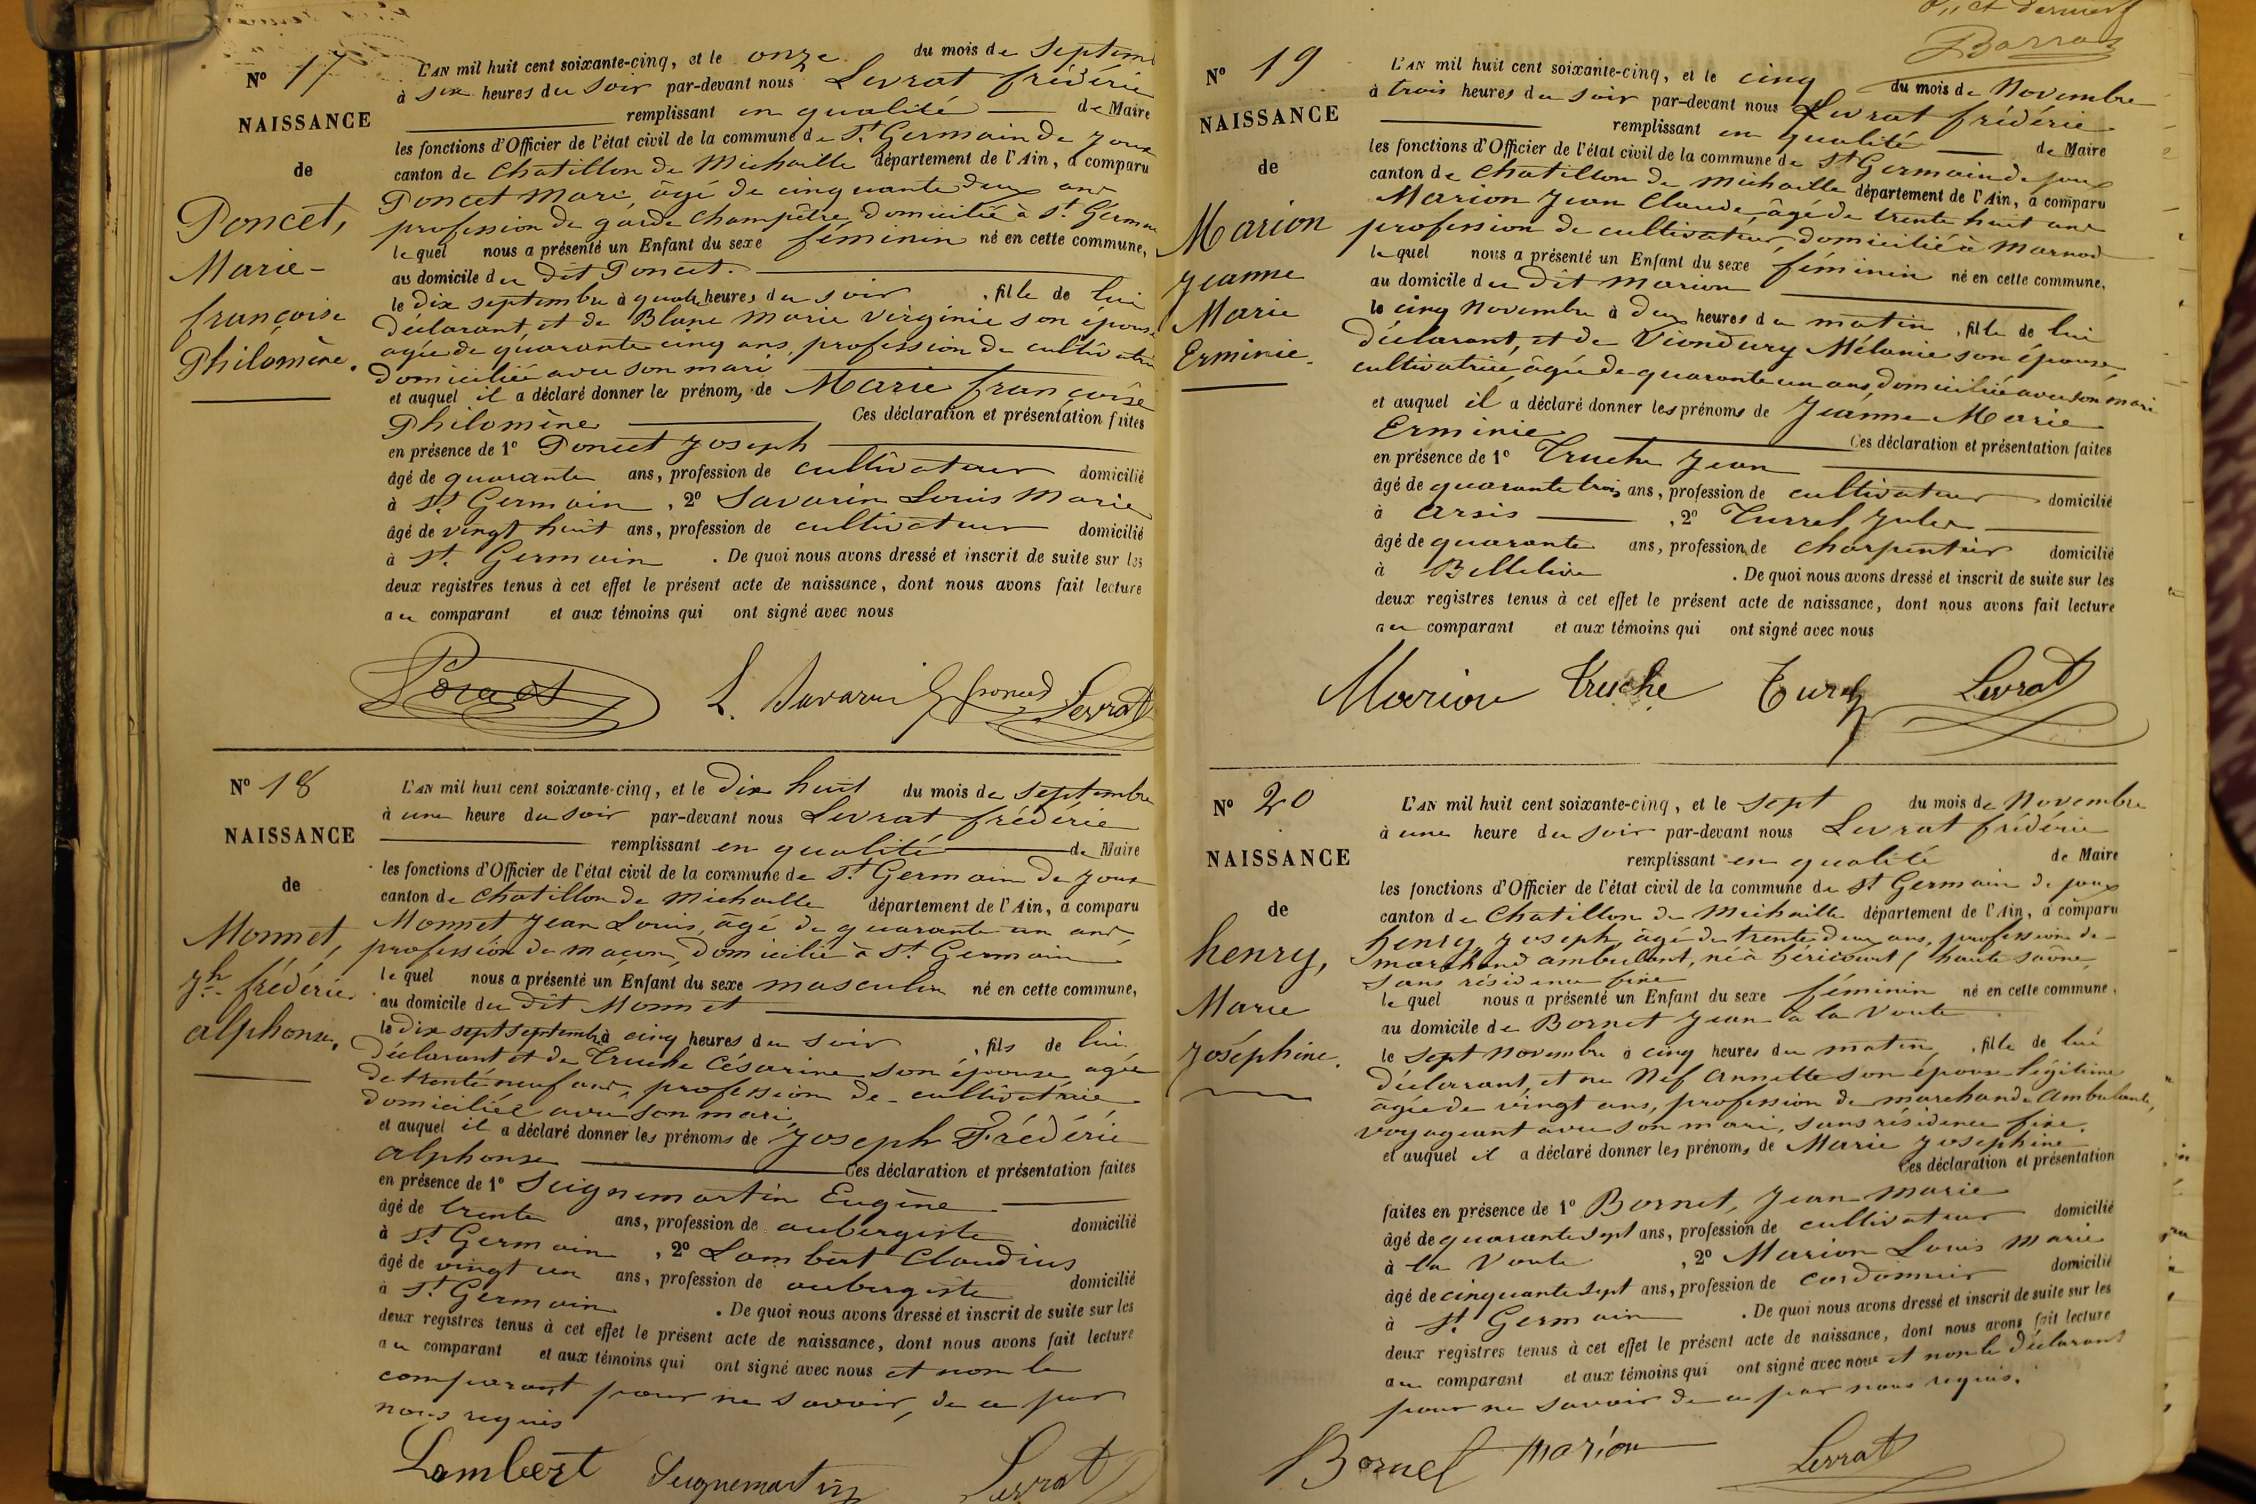 N° 17
NAISSANCE
de
Poncet,
Marie-
françoise
Philomène.
L'AN mil huit cent soixante-cinq, et le onze du mois de septem
à six heures du soir par-devant nous Levrat frédéric
remplissant en qualité de Maire
les fonctions d'Officier de l'état civil de la commune de St Germain de Joux
canton de Chatillon de Michaille département de l'Ain, a comparu
Poncet Marie, âgé de cinquante deux ans
profession de garde champêtre, domicilié à St. Germain
lequel nous a présenté un Enfant du sexe féminin né en cette commune,
au domicile du dit Poncet.
le dix septembre à quatre heures du soir, fille de lui
déclarant, et de Blanc Marie Virginie son épouse
agée de quarante cinq ans, profession de cultivatrice
domiciliée avec son mari
et auquel il a déclaré donner les prénoms de Marie françoise
Philomène Ces déclaration et présentation faites
en présence de 1° Poncet Joseph
âgé de quarante ans, profession de cultivateur domicilié
à St. Germain, 2° Savarin Louis Marie
âgé de vingt huit ans, profession de cultivateur domicilié
à St. Germain. De quoi nous avons dressé et inscrit de suite sur les
deux registres tenus à cet effet le présent acte de naissance, dont nous avons fait lecture
au comparant et aux témoins qui ont signé avec nous
Poncet L. Savarin Levrat
N° 18
NAISSANCE
de
Monnet,
Jh frédéric
alphonse.
L'AN mil huit cent soixante-cinq, et le dix huit du mois de septembre
à une heure du soir par-devant nous Levrat frédéric
remplissant en qualité de Maire
les fonctions d'Officier de l'état civil de la commune de St. Germain de Joux
canton de Chatillon de Michaille département de l'Ain, a comparu
Monnet Jean Louis, âgé de quarante un ans,
profession de maçon, domicilié à St. Germain
lequel nous a présenté un Enfant du sexe masculin né en cette commune,
au domicile du dit Monnet
le dix sept septembre à cinq heures du soir, fils de lui
déclarant et de Truche Césarine son épouse agée
de trente neuf ans, profession de cultivatrice
domiciliée avec son mari,
et auquel il a déclaré donner les prénoms de Joseph Frédéric
alphonse Ces déclaration et présentation faites
en présence de 1° Seignemartin Eugène
âgé de trente ans, profession de aubergiste domicilié
à St. Germain, 2° Lambert Claudius
âgé de vingt un ans, profession de aubergiste domicilié
à St. Germain. De quoi nous avons dressé et inscrit de suite sur les
deux registres tenus à cet effet le présent acte de naissance, dont nous avons fait lecture
au comparant et aux témoins qui ont signé avec nous et non le
comparant pour ne savoir, de ce par
nous requis
Lambert Seignemartin Levrat
Barras
N° 19
NAISSANCE
de
Marion
Jeanne
Marie
Erminie.
L'AN mil huit cent soixante-cinq, et le cinq du mois de Novembre
à trois heures du soir par-devant nous Levrat frédéric
remplissant en qualité de Maire
les fonctions d'Officier de l'état civil de la commune de St Germain de joux
canton de Chatillon de Michaille département de l'Ain, a comparu
Marion Jean Claude, âgé de trente huit ans
profession de cultivateur, domicilié à Marnod
lequel nous a présenté un Enfant du sexe féminin né en cette commune,
au domicile du dit Marion
le cinq Novembre à deux heures du matin, fille de lui
déclarant, et de Viondury Mélanie son épouse,
cultivatrice, âgée de quarante un ans, domiciliée avec son mari
et auquel il a déclaré donner les prénoms de Jeanne Marie
Erminie Ces déclaration et présentation faites
en présence de 1° Truche Jean
âgé de quarante trois ans, profession de cultivateur domicilié
à Arsis, 2° Turrel Jules
âgé de quarante ans, profession de charpentier domicilié
à . De quoi nous avons dressé et inscrit de suite sur les
deux registres tenus à cet effet le présent acte de naissance, dont nous avons fait lecture
au comparant et aux témoins qui ont signé avec nous
Marion Truche Levrat
N° 20
NAISSANCE
de
henry,
Marie
Joséphine.
L'AN mil huit cent soixante-cinq, et le sept du mois de Novembre
à une heure du soir par-devant nous Levrat frédéric
remplissant en qualité de Maire
les fonctions d'Officier de l'état civil de la commune de St Germain de joux
canton de Chatillon de Michaille département de l'Ain, a comparu
henry Joseph âgé de trente deux ans, profession de
marchand ambulant, né à héricourt (haute saône,
sans résidence fixe
lequel nous a présenté un Enfant du sexe féminin né en cette commune,
au domicile de Bornet Jean à la Voute
le sept Novembre à cinq heures du matin, fille de lui
déclarant, et de Nef Annette son épouse légitime
âgée de vingt ans, profession de marchande ambulante,
voyageant avec son mari, sans résidence fixe.
et auquel il a déclaré donner les prénoms de Marie Joséphine
Ces déclaration et présentation
faites en présence de 1° Bornet, Jean Marie
âgé de quarante sept ans, profession de cultivateur domicilié
à la Voute, 2° Marion Louis Marie
âgé de cinquante sept ans, profession de cordonnier domicilié
à St. Germain. De quoi nous avons dressé et inscrit de suite sur les
deux registres tenus à cet effet le présent acte de naissance, dont nous avons fait lecture
au comparant et aux témoins qui ont signé avec nous et non le déclarant
pour ne savoir de ce par nous requis.
Bornet Marion Levrat